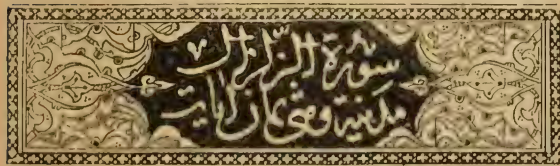 سورة الزلزال
مدنية وهي ثمان آيات